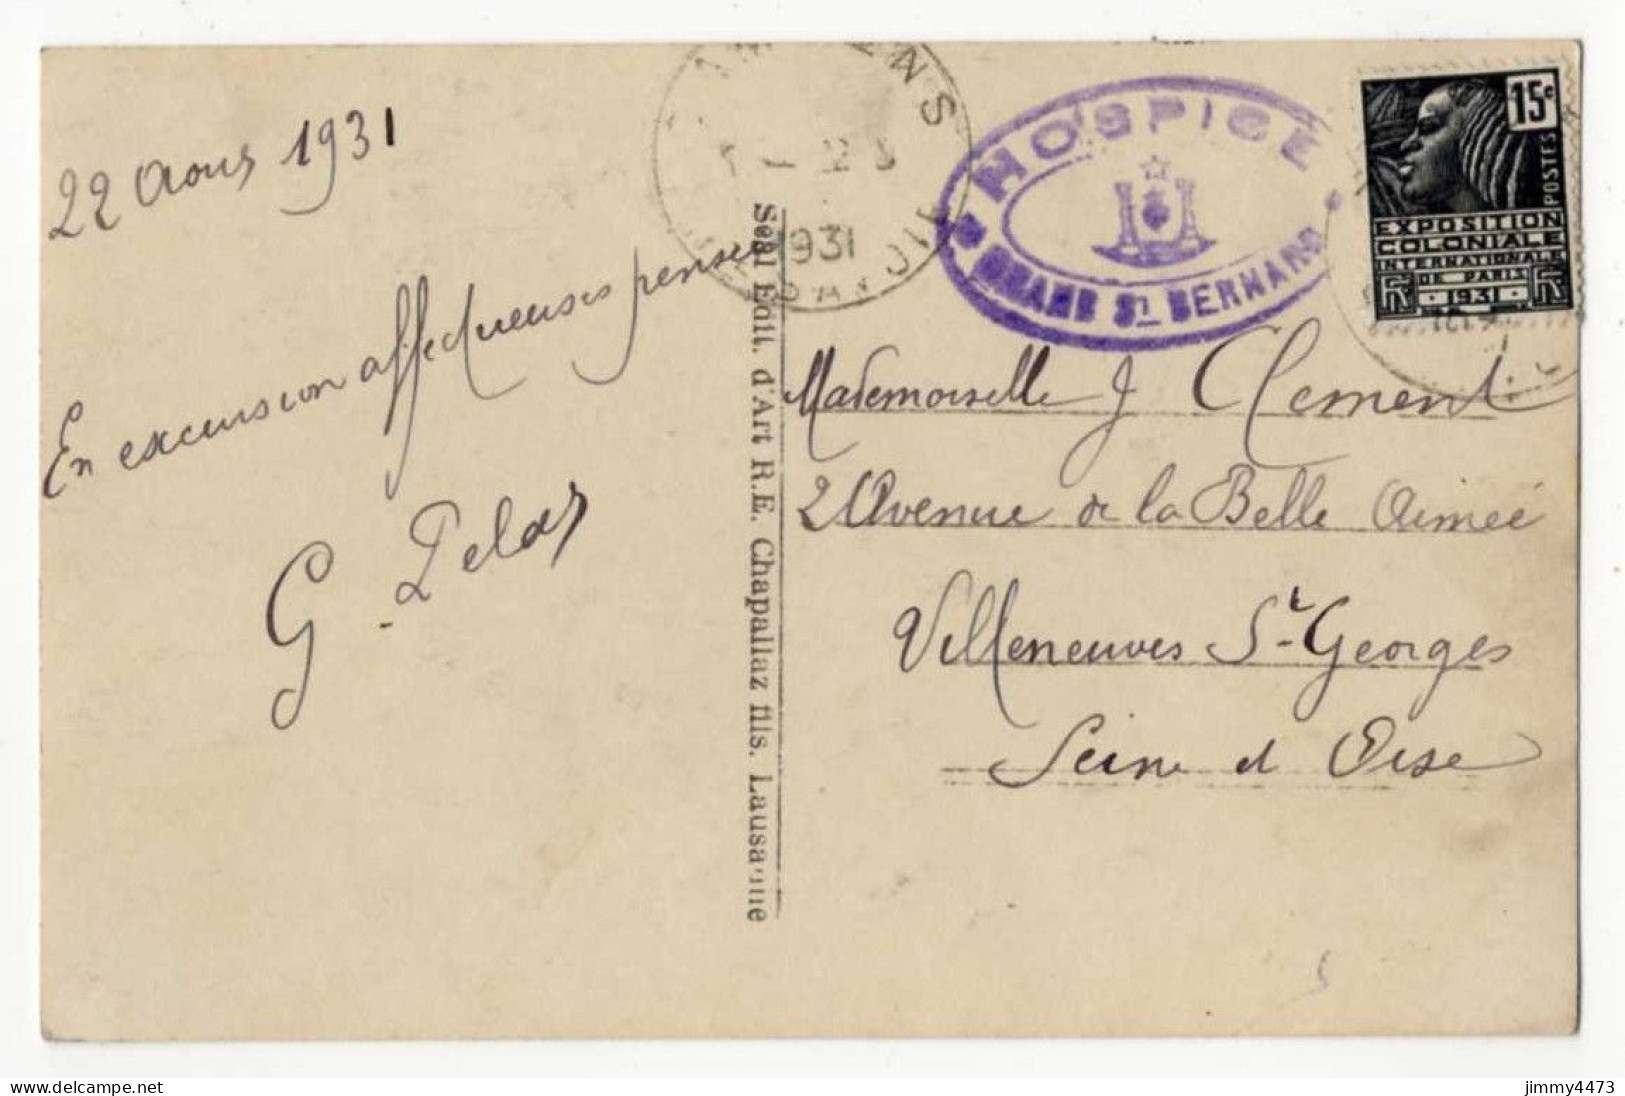 22 Aout 1931
En excursion affectueuses pensées
G. Pelas
Seul Edit. d'Art R.E. Chapallaz fils. Lausanne
1931
HOSPICE
GRAND St BERNARD
15c
POSTES
EXPOSITION
COLONIALE
INTERNATIONALE
DE PARIS
RF 1931 RF
Mademoiselle J Clement
2 Avenue de la Belle Aimée
Villeneuves St Georges
Seine et Oise
www.delcampe.net
jimmy4473